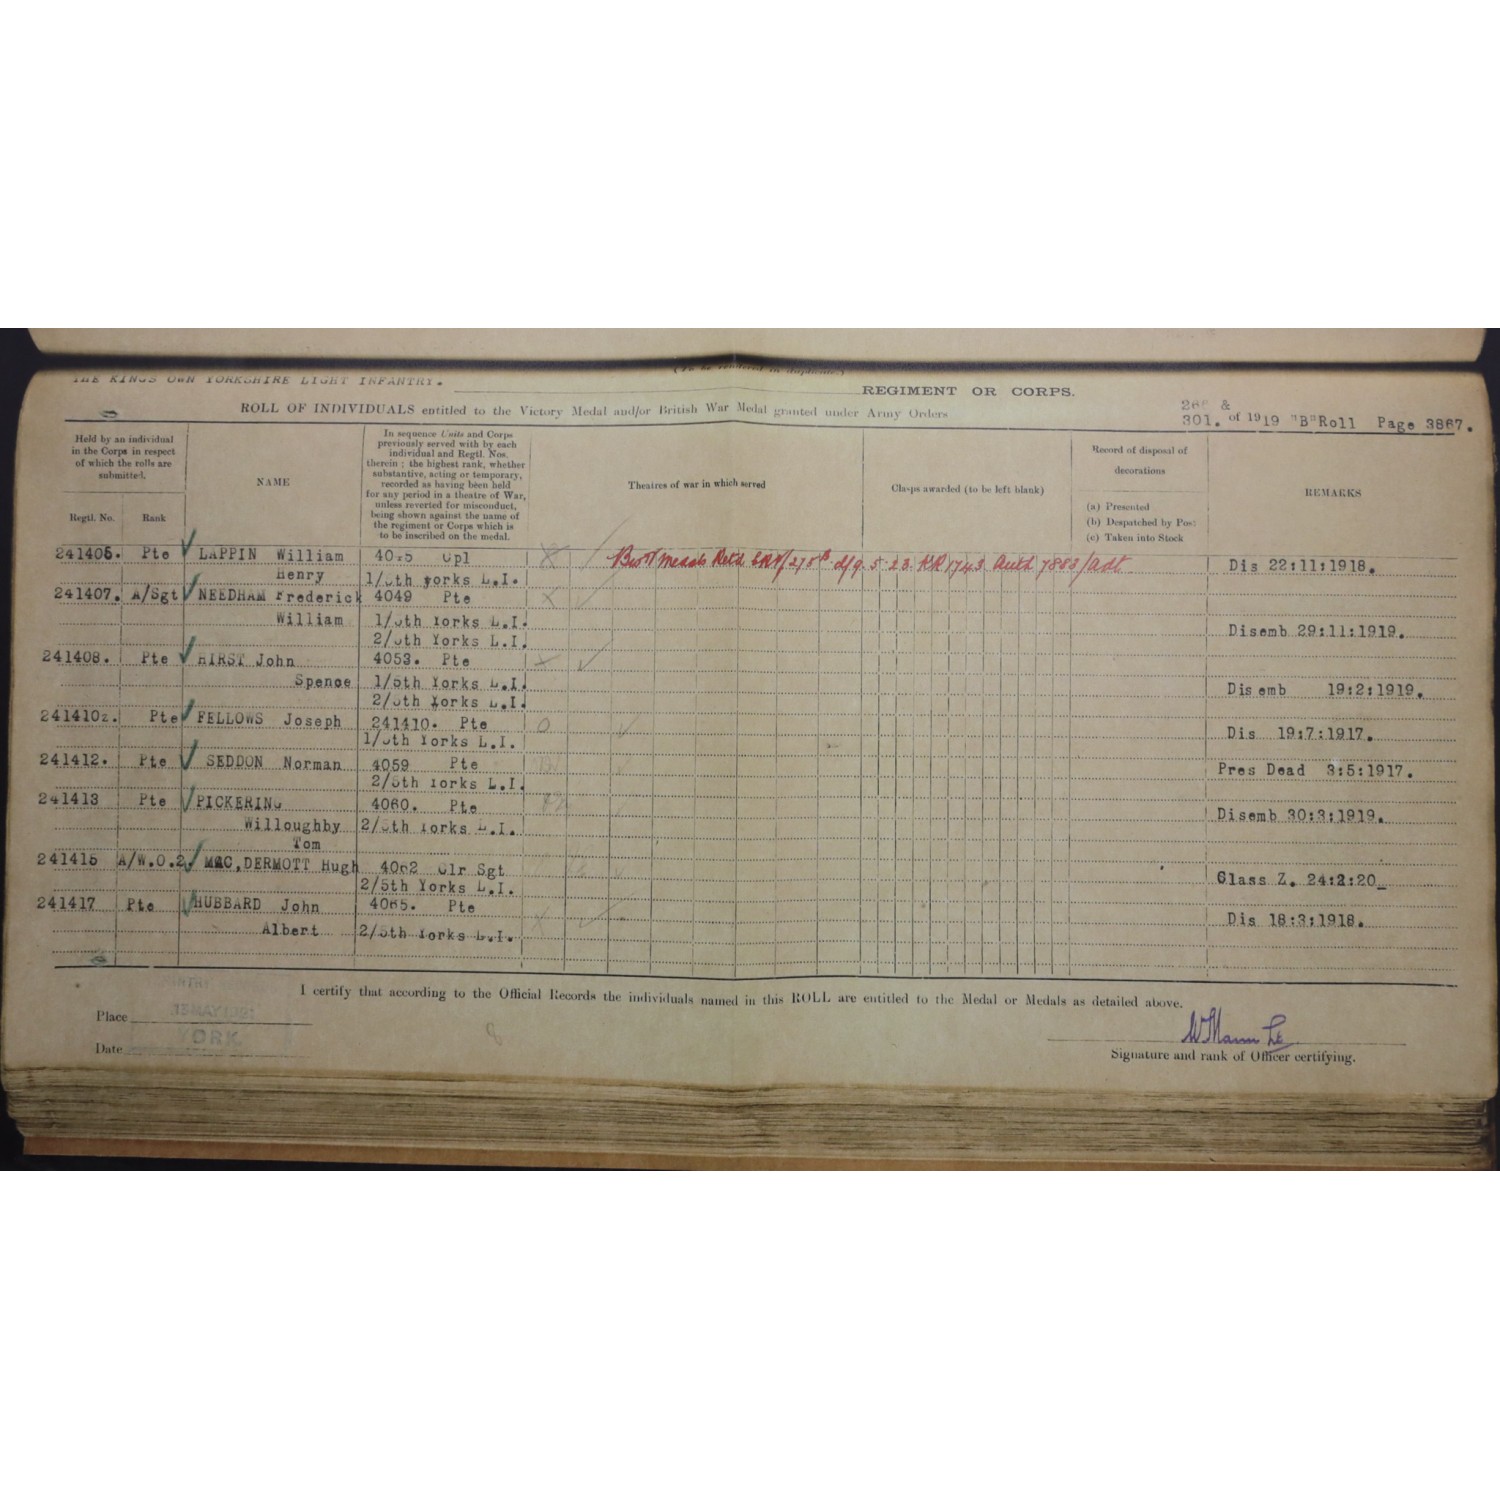 (To be rendered in duplicate.)
THE KINGS OWN YORKSHIRE LIGHT INFANTRY. REGIMENT OR CORPS.
ROLL OF INDIVIDUALS entitled to the Victory Medal and/or British War Medal granted under Army Orders 301. of 1919 "B"Roll Page 3867.
Held by an individual in the Corps in respect of which the rolls are submitted.
Regtl. No. Rank
NAME
In sequence Units and Corps previously served with by each individual and Regtl. Nos. therein ; the highest rank, whether substantive, acting or temporary, recorded as having been held for any period in a theatre of War, unless reverted for misconduct, being shown against the name of the regiment or Corps which is to be inscribed on the medal.
Theatres of war in which served
Clasps awarded (to be left blank)
Record of disposal of decorations
(a) Presented
(b) Despatched by Post
(c) Taken into Stock
REMARKS
Pte LAPPIN William Cpl Medals Retd 5 23 KR 1743 Auth 7883/Adt Dis 22:11:1918.
Henry 1/5th Yorks L.I.
241407. A/Sgt NEEDHAM Frederick 4049 Pte
William 1/5th Yorks L.I.
2/5th Yorks L.I. Disemb 29:11:1919.
241408. Pte HIRST John 4053. Pte
Spence 1/5th Yorks L.I.
2/5th Yorks L.I. Disemb 19:2:1919.
241410 Pte FELLOWS Joseph 241410. Pte
1/5th Yorks L.I. Dis 19:7:1917.
241412. Pte SEDDON Norman 4059 Pte
2/5th Yorks L.I. Pres Dead 3:5:1917.
241413 Pte PICKERING 4060. Pte
Willoughby 2/5th Yorks L.I. Disemb 30:3:1919.
Tom
241415 A/W.O.2. MAC,DERMOTT Hugh 4062 Clr Sgt
2/5th Yorks L.I. Class Z. 24:2:20
241417 Pte HUBBARD John 4065. Pte
Albert 2/5th Yorks L.I. Dis 18:3:1918.
I certify that according to the Official Records the individuals named in this ROLL are entitled to the Medal or Medals as detailed above.
Place
YORK.
Date
Signature and rank of Officer certifying.